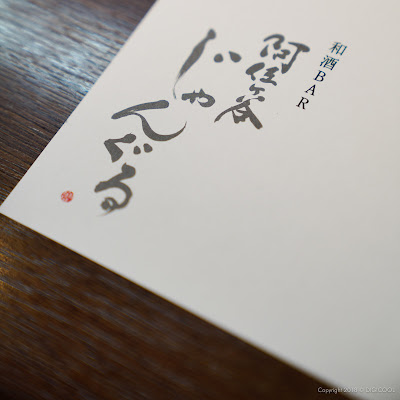 和酒BAR
阿佐ヶ谷
じゃんぐる
Copyright